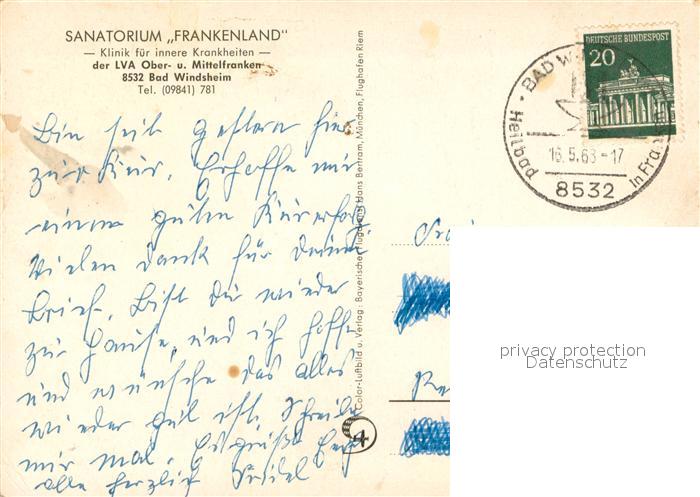 SANATORIUM „FRANKENLAND"
— Klinik für innere Krankheiten —
der LVA Ober- u. Mittelfranken
8532 Bad Windsheim
Tel. (09841) 781
Bin seit gestern hier
zur Kur. Erhoffe mir
einen guten Kurerfolg
Vielen Dank für deinen
Brief. Bist du wieder
zur Hause, und ich hoffe
und wünsche das alles
wieder gut ist. Schreibe
mir mal. Es grüßt Euch
alle herzlich
Color-Luftbild u. Verlag: Bayerischer Flugdienst Hans Bertram, München, Flughafen Riem
DEUTSCHE BUNDESPOST
20
BAD
Heilbad
16.5.68-17
in Fran
8532
privacy protection
Datenschutz